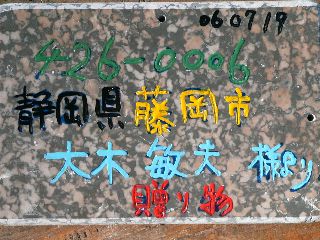 060719
426-0006
静岡県藤岡市
大木敏夫 様より
贈り物